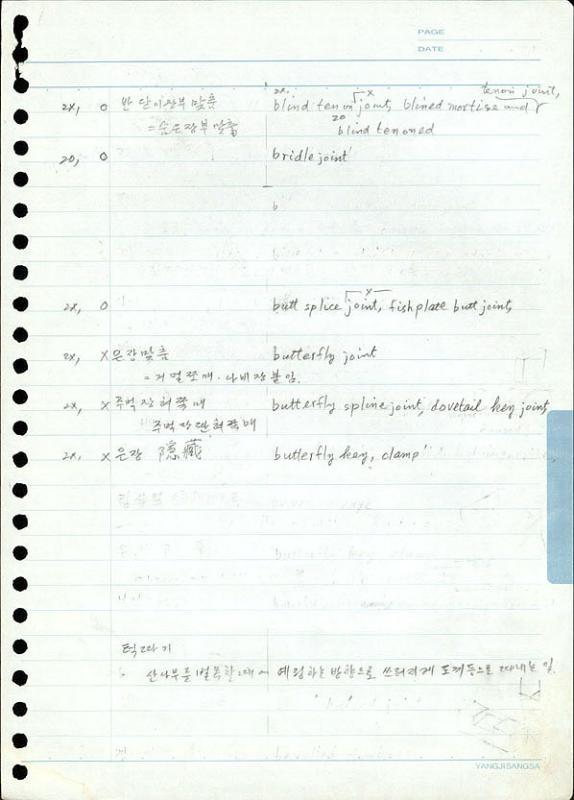 PAGE
DATE
tenon joint,
2x. x
2x, O 반 단이장부 맞춤 blind tenon joint, blined mortise and
= 숨은장부 맞춤 20 blind tenoned
20, O bridle joint
b
x
2x, O butt splice joint, fishplate butt joint,
2x, X 은장맞춤 butterfly joint
= 거멀쪼매. 나비장붙임.
2x, X 주먹장혀쪽매 butterfly spline joint, dovetail key joint
주먹장딴혀쪽매
2x, X 은장 隱藏 butterfly key, clamp
턱따기
산나무를 벌목할 때에 예정하는 방향으로 쓰러지게 도끼등으로 따내는 일.
YANGJISANGSA